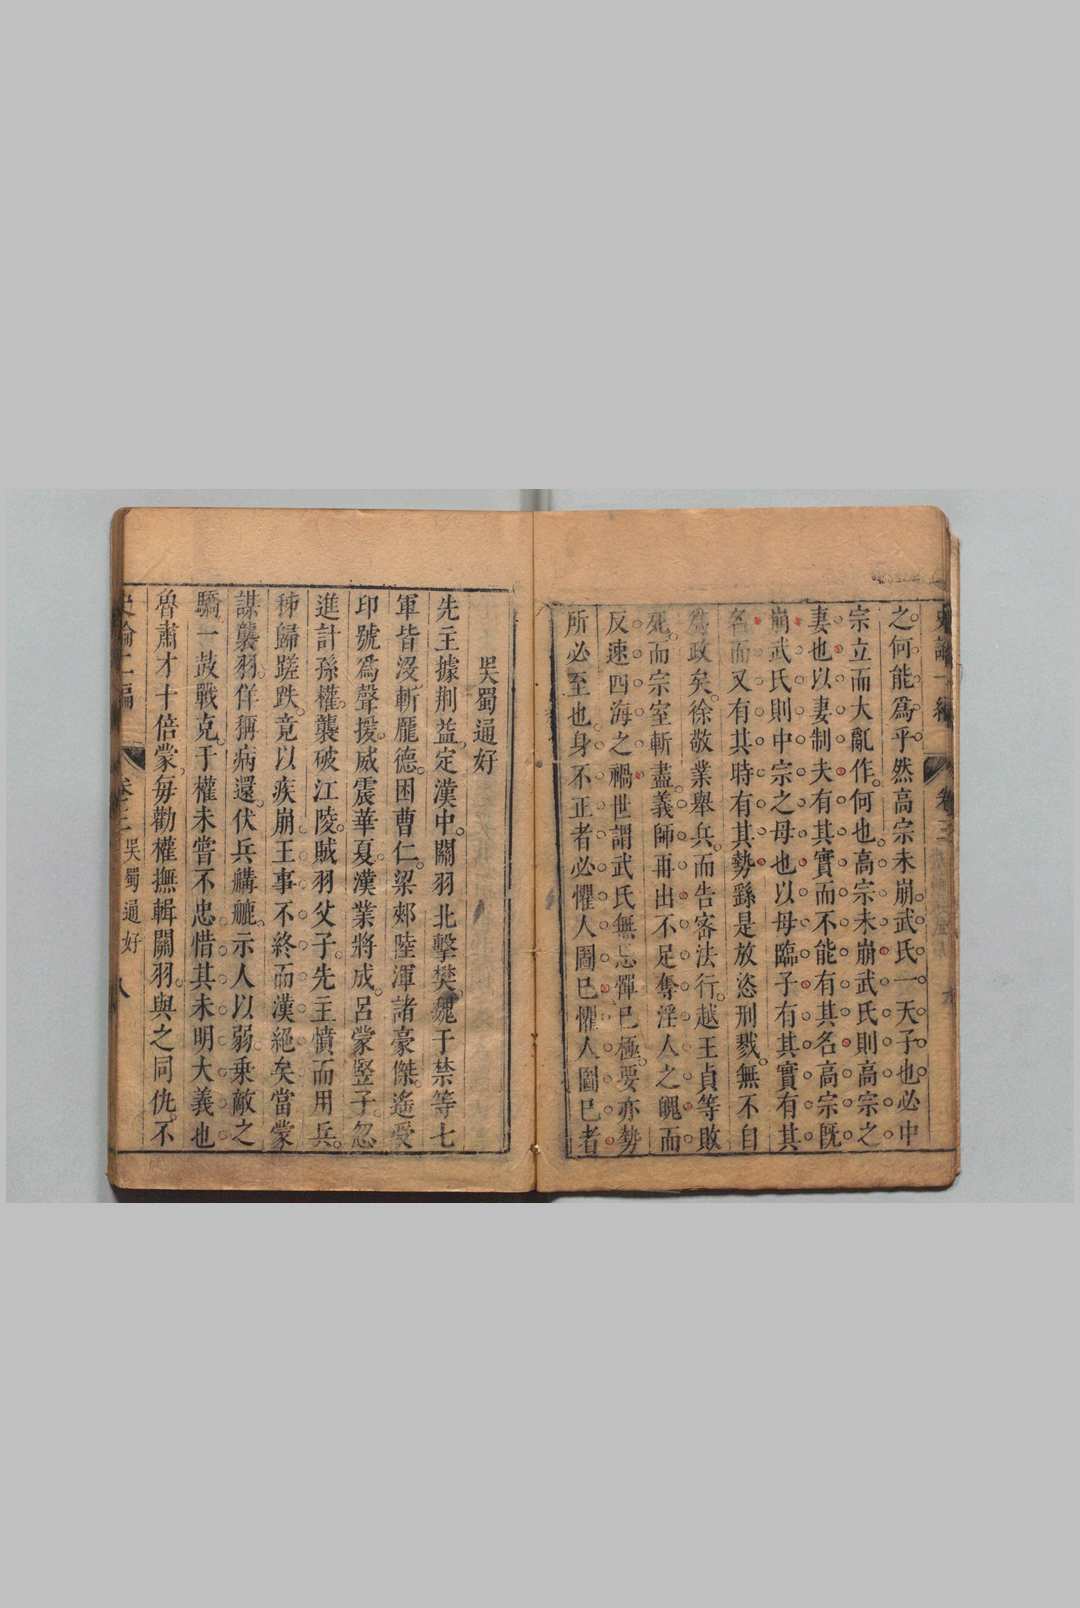 之何能爲乎然高宗未崩武氏一天子也必中
宗立而大亂作何也高宗未崩武氏則高宗之
妻也以妻制夫有其實而不能有其名高宗旣
崩武氏則中宗之母也以母臨子有其實有其
名而又有其時有其勢繇是放恣刑戮無不自
爲政矣徐敬業舉兵而告密法行越王貞等敗
死而宗室斬盡義師再出不足奪淫人之魄而
反速四海之禍世謂武氏無忌憚已極要亦勢
所必至也身不正者必懼人圖已懼人圖巳者
吳蜀通好
先主據荆益定漢中關羽北擊樊魏于禁等七
軍皆沒斬龐德困曹仁梁郟陸渾諸豪傑遙受
印號爲聲援威震華夏漢業將成呂蒙豎子忽
進計孫權襲破江陵賊羽父子先主憤而用兵
秭歸蹉跌竟以疾崩王事不終而漢絕矣當蒙
謀襲羽佯稱病還伏兵𦩷𦪇示人以弱乘敵之
驕一鼓戰克于權未嘗不忠惜其未明大義也
魯肅才十倍蒙每勸權撫輯關羽與之同仇不
史論二編
卷之三
吳蜀通好
八